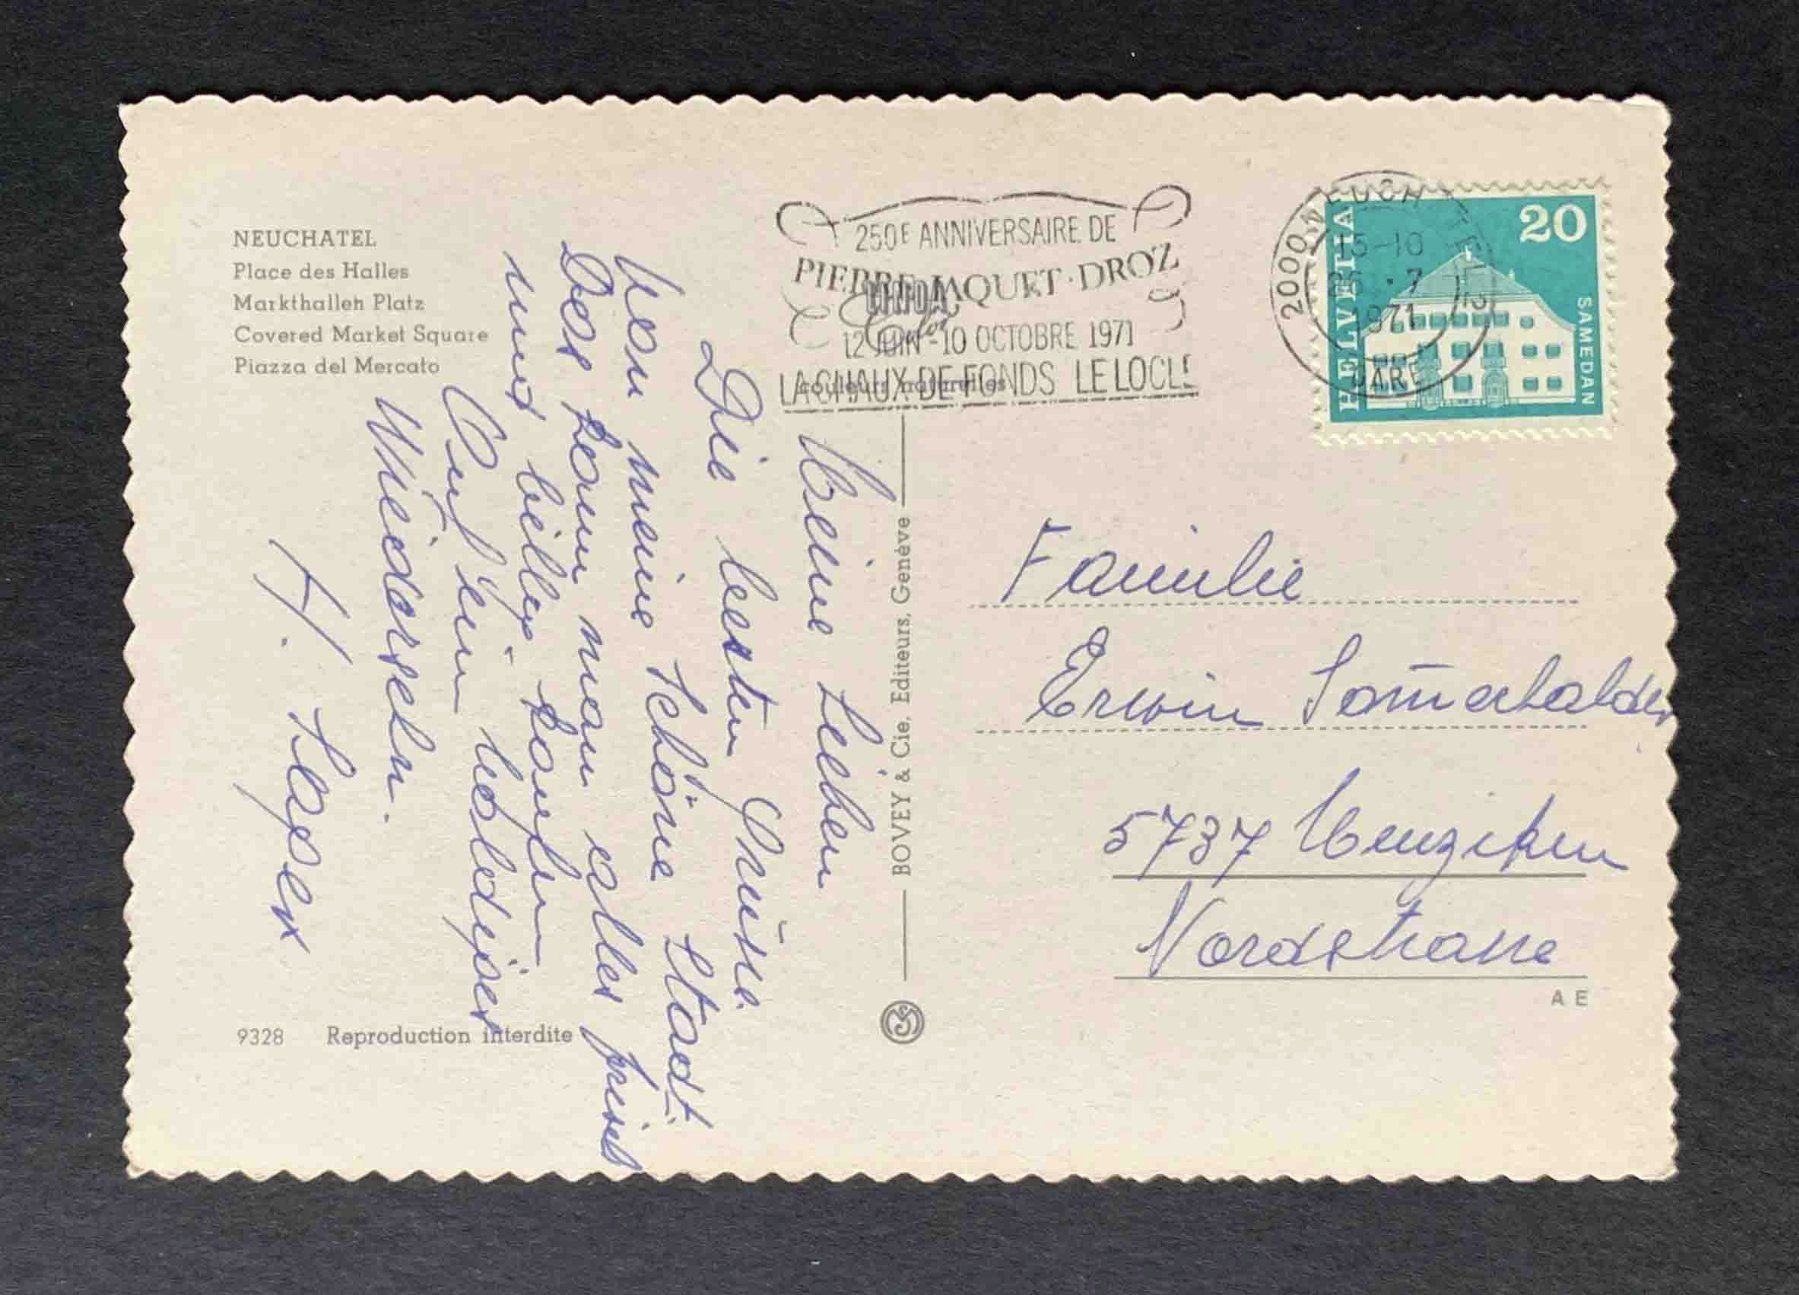 NEUCHATEL
Place des Halles
Markthallen Platz
Covered Market Square
Piazza del Mercato
250E ANNIVERSAIRE DE
PIERRE JAQUET·DROZ
12 JUIN-10 OCTOBRE 1971
LA CHAUX-DE-FONDS LE LOCLE
couleurs naturelles
2000 NEUCHÂTEL 2
15-10
26.·7
1971
GARE
HELVETIA
20
SAMEDAN
Meine Lieben
Die besten Grüsse
von meine schöne Stadt.
Dort kann man alles frisch
und billig kaufen
Auf ein baldiges
Wiedersehn.
H.
BOVEY & Cie, Editeurs, Genève
Familie
Erwin Som̄erhalder
5737 Menziken
Nordstrasse
A E
9328 Reproduction interdite